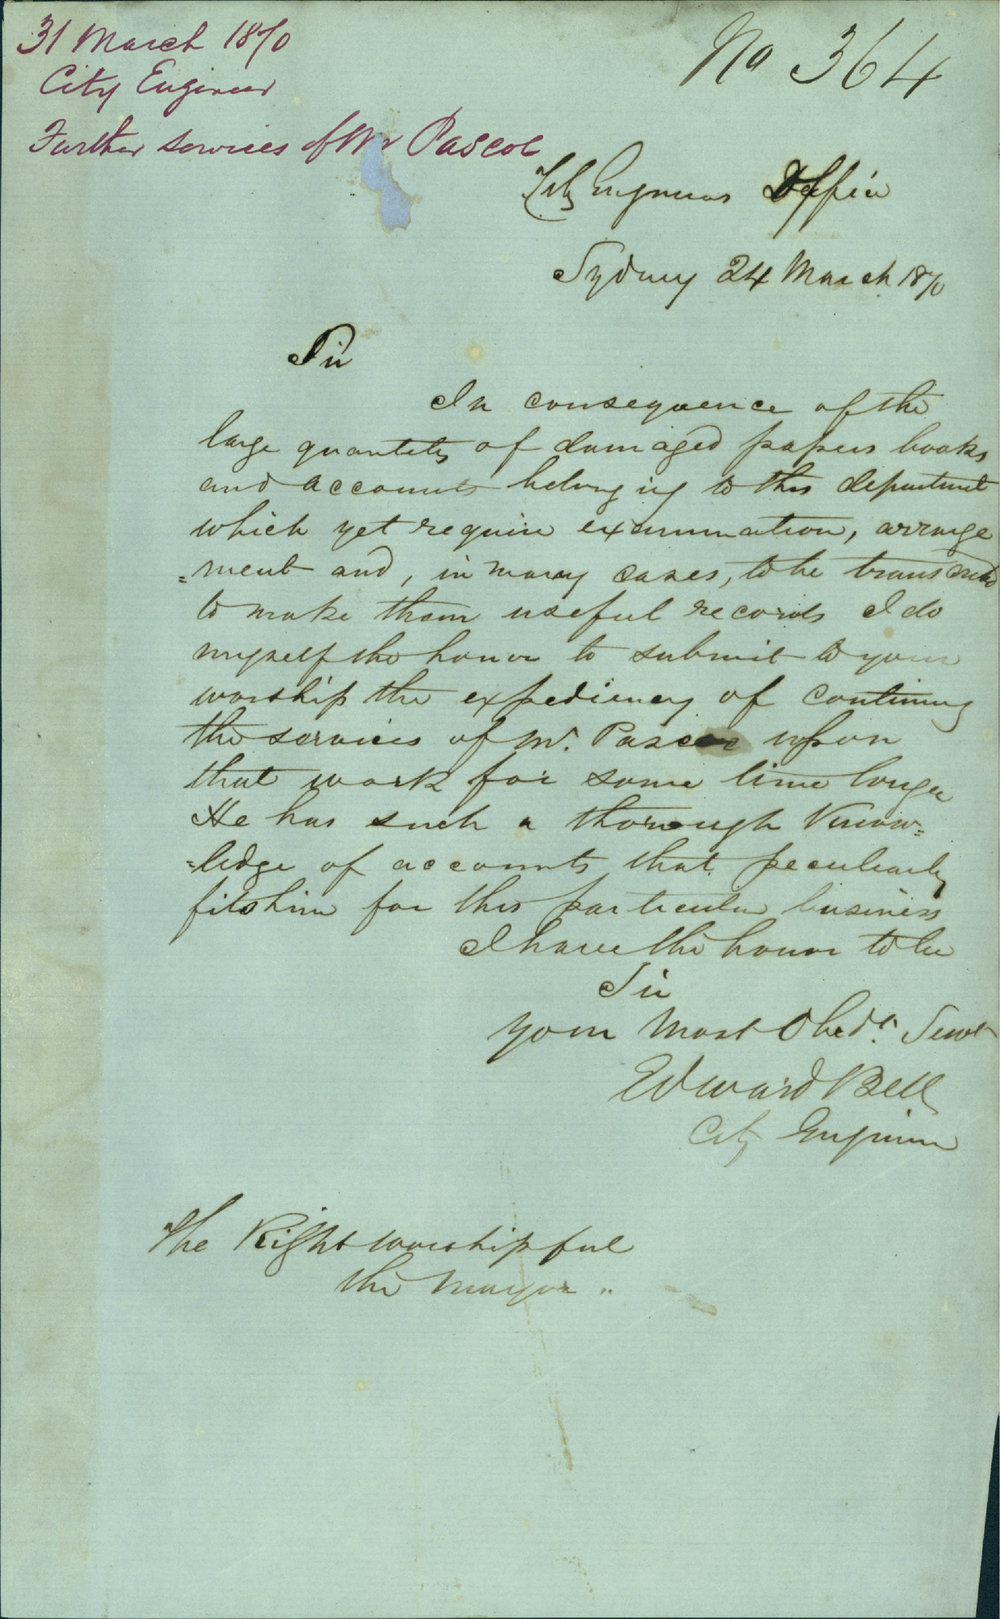 31 March 1870
City Engineer
Further services of Mr Pascoe
No 364
City Engineers Office
Sydney 24 March 1870
Sir
In consequence of the
large quantity of damaged papers books
and accounts belonging to this department
which yet require examination, arrange
=ment and, in many cases, to be transcribed
to make them useful records I do
myself the honor to submit to your
worship the expediency of continuing
the services of Mr. Pascoe upon
that work for some time longer
He has such a thorough know=
=ledge of accounts that peculiarly
fits him for this particular business
I have the honor to be
Sir
your Most Obedt. Servt
Edward Bell
City Engineer
The Right worshipful
the Mayor ..